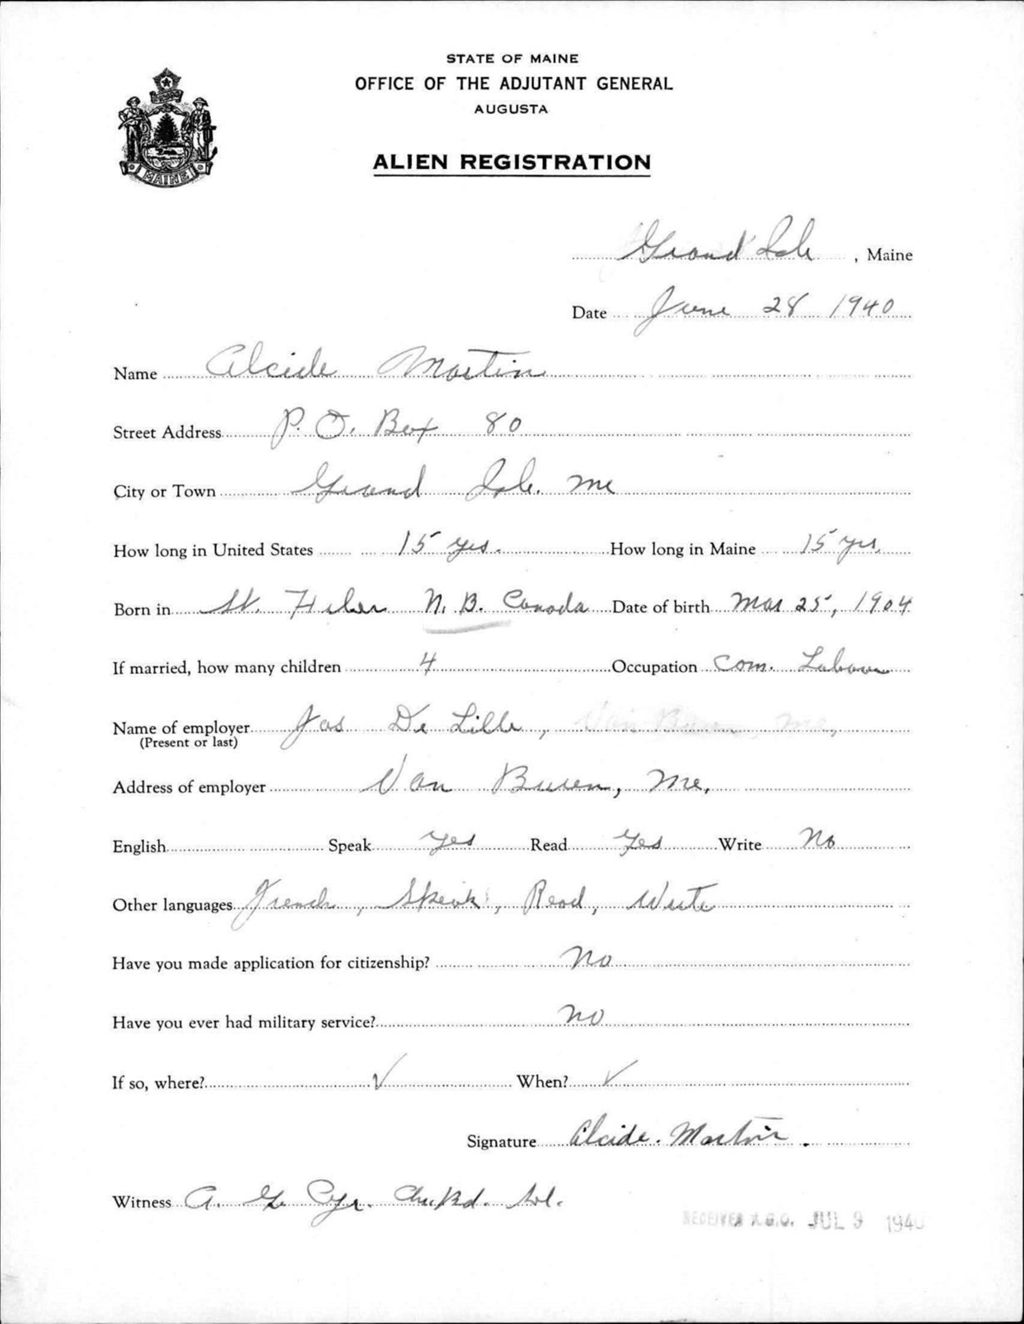 STATE OF MAINE
OFFICE OF THE ADJUTANT GENERAL
AUGUSTA
MAINE
ALIEN REGISTRATION
Grand Isle, Maine
Date June 28 1940
Name Alcide Martin
Street Address P. O. Box 80
City or Town Grand Isle. Me
How long in United States 15 yrs. How long in Maine 15 yrs.
Born in St. Hiler N. B. Canada Date of birth Mar 25, 1904
If married, how many children 4 Occupation Com. Laborer
Name of employer Jas De Lille, Van Buren, Me,
(Present or last)
Address of employer Van Buren, Me.
English Speak yes Read Yes Write No
Other languages French, Speak, Read, Write
Have you made application for citizenship? No
Have you ever had military service? No
If so, where? √ When? √
Signature Alcide. Martin.
Witness A. Cyr. Sel.
RECEIVED A.G.O. JUL 9 1940